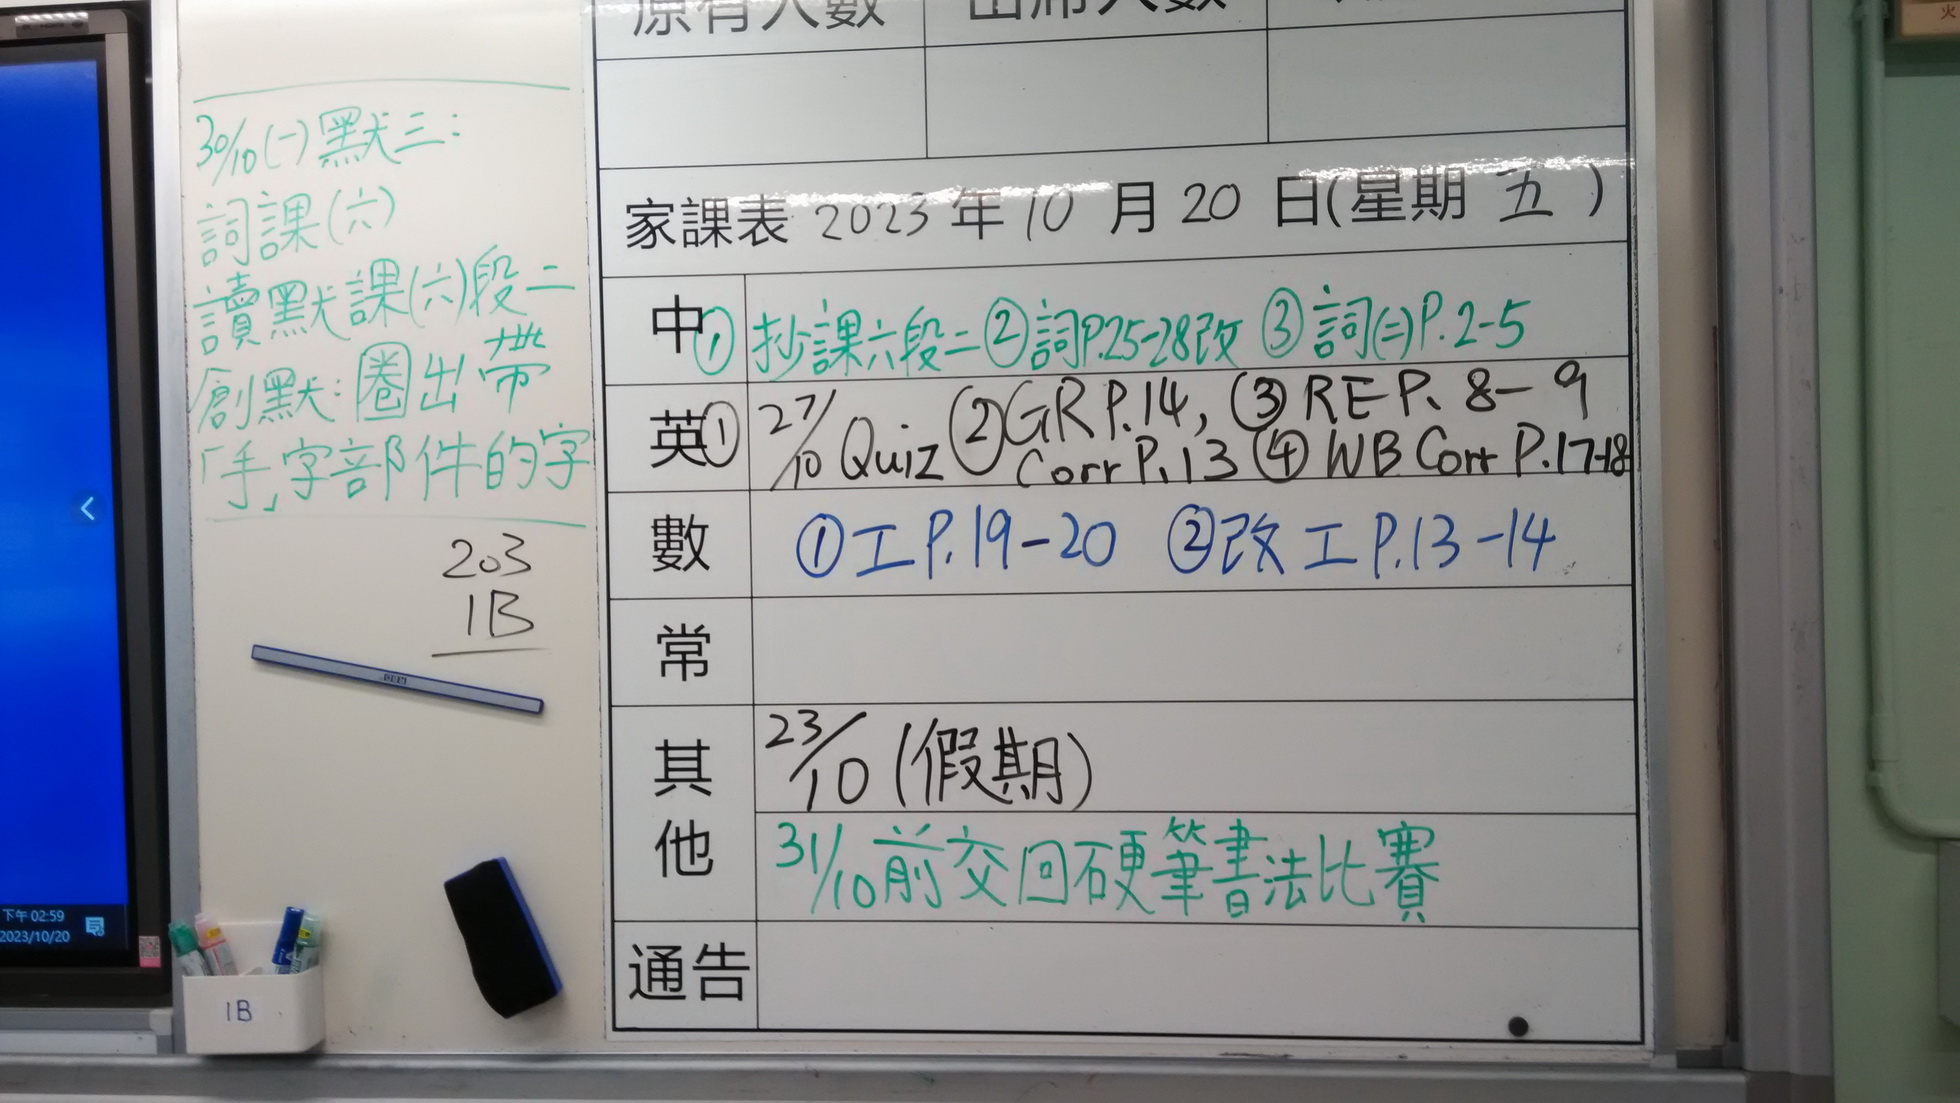 原有人數 出席人數
30/10(一)默三:
詞課(六)
讀默課(六)段二
創默:圈出帶
「手」字部件的字
203
1B
家課表 2023 年 10 月 20 日(星期 五 )
中 ① 抄課六段二 ② 詞P.25-28改 ③ 詞(二)P.2-5
英 ① 27/10 Quiz ② GR P.14, ③ RE P. 8-9
Corr P.13 ④ WB Corr P.17-18
數 ① 工 P.19-20 ② 改 工 P.13-14
常
其他
23/10 (假期)
31/10前交回硬筆書法比賽
通告
下午 02:59
2023/10/20
1B
火